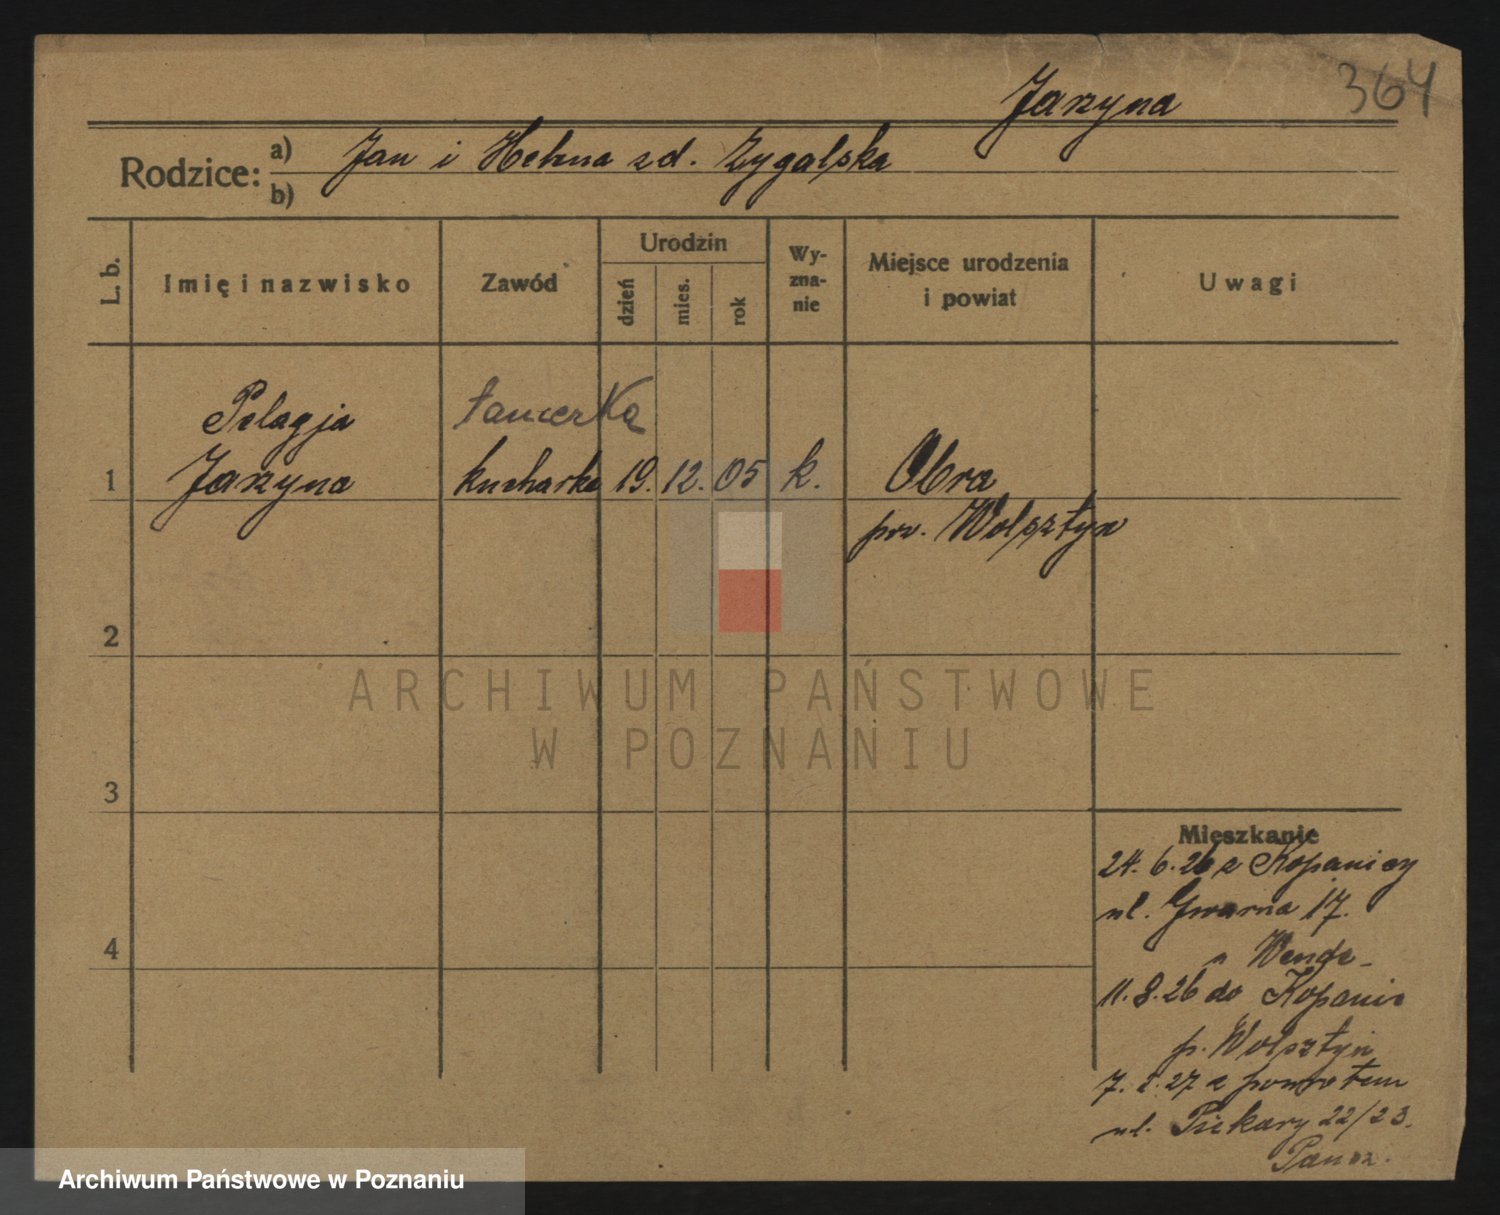 364
Jarzyna
Rodzice: a) Jan i Helena zd. Zygalska
b)
L. b.
Imię i nazwisko
Zawód
Urodzin
dzień
mies.
rok
Wy-
zna-
nie
Miejsce urodzenia
i powiat
Uwagi
Pelagja
tancerka
1 Jarzyna kucharka 19. 12. 05 k. Obra
pow. Wolsztyn
2
3
4
ARCHIWUM PAŃSTWOWE
W POZNANIU
Mieszkanie
24. 6. 26 z Kopanicy
ul. Gwarna 17.
u Wende
11. 8. 26 do Kopanic
p. Wolsztyn
7. 2. 27 z powrotem
ul. Piekary 22/23.
Archiwum Państwowe w Poznaniu